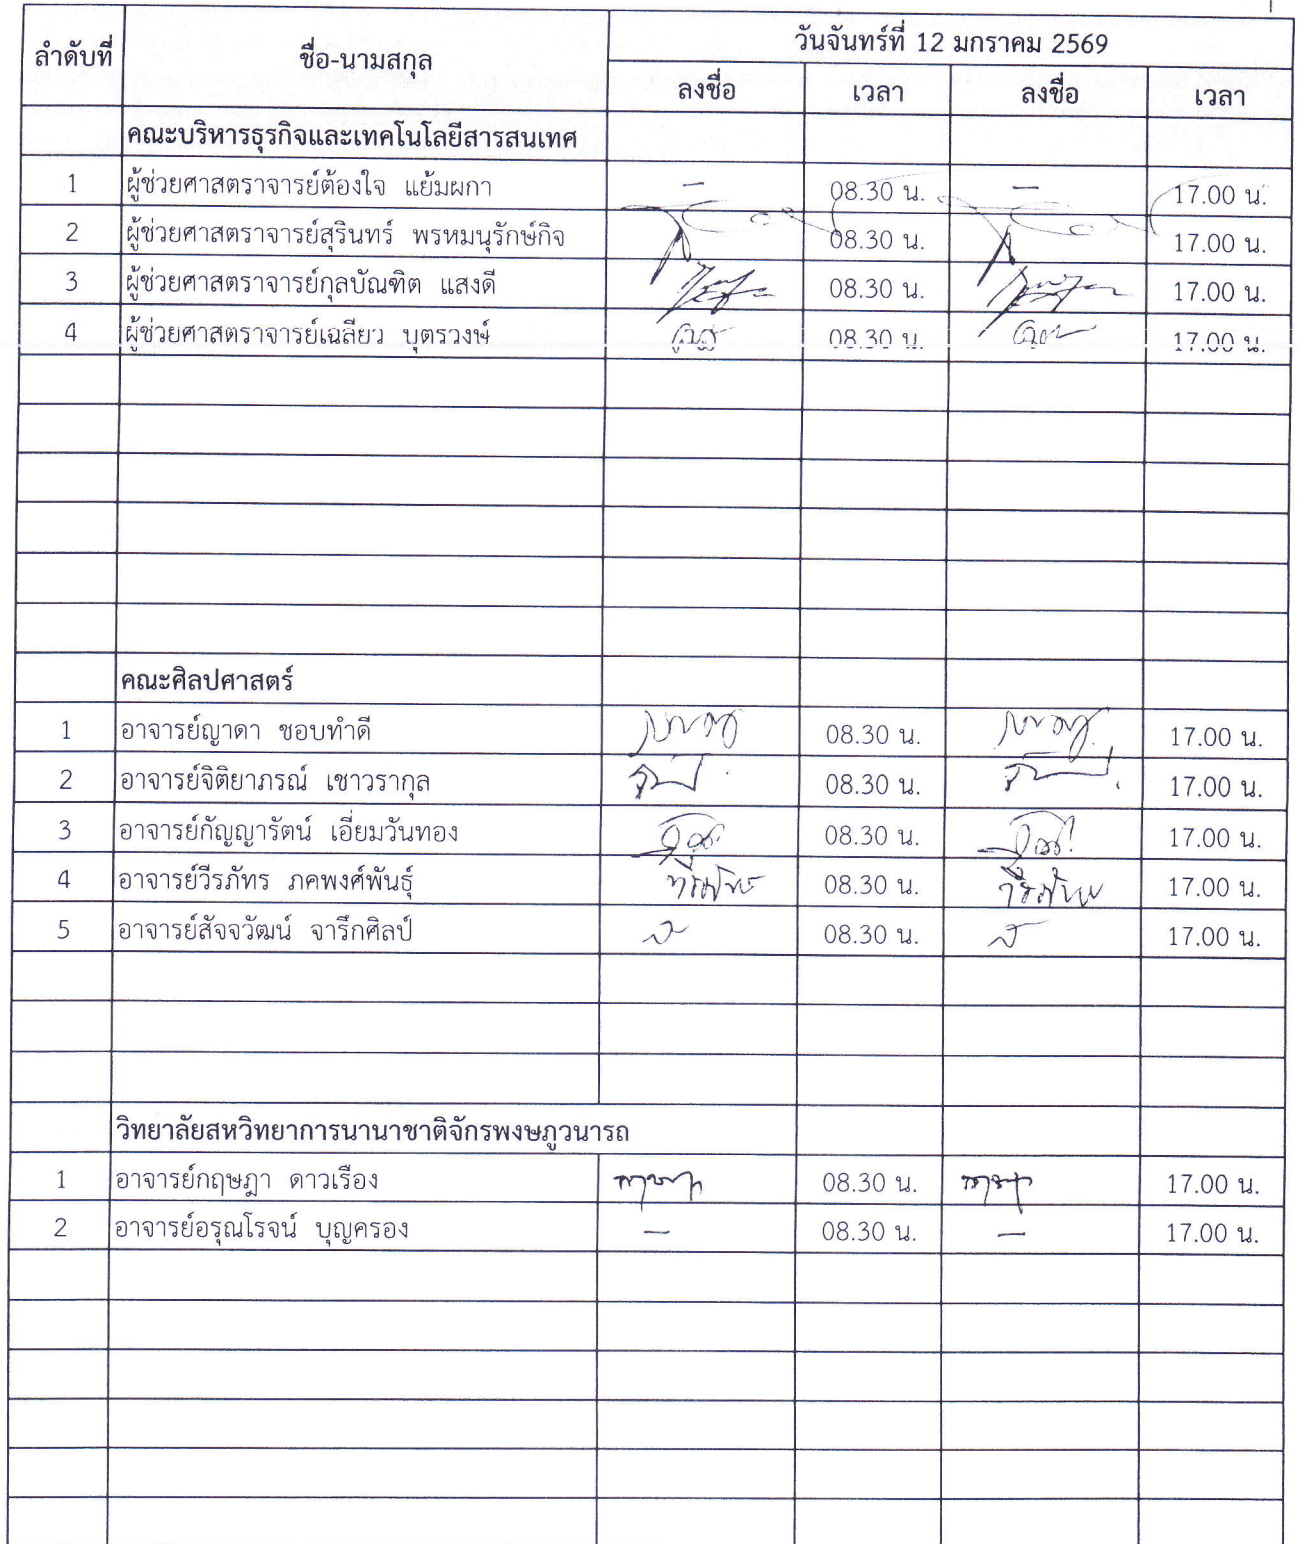 ลำดับที่ ชื่อ-นามสกุล วันจันทร์ที่ 12 มกราคม 2569
ลงชื่อ เวลา ลงชื่อ เวลา
คณะบริหารธุรกิจและเทคโนโลยีสารสนเทศ
1 ผู้ช่วยศาสตราจารย์ต้องใจ แย้มผกา – 08.30 น. – 17.00 น.
2 ผู้ช่วยศาสตราจารย์สุรินทร์ พรหมนุรักษ์กิจ 08.30 น. 17.00 น.
3 ผู้ช่วยศาสตราจารย์กุลบัณฑิต แสงดี 08.30 น. 17.00 น.
4 ผู้ช่วยศาสตราจารย์เฉลียว บุตรวงษ์ 08.30 น. 17.00 น.
คณะศิลปศาสตร์
1 อาจารย์ญาดา ชอบทำดี 08.30 น. 17.00 น.
2 อาจารย์จิติยาภรณ์ เชาวรากุล 08.30 น. 17.00 น.
3 อาจารย์กัญญารัตน์ เอี่ยมวันทอง 08.30 น. 17.00 น.
4 อาจารย์วีรภัทร ภคพงศ์พันธุ์ 08.30 น. 17.00 น.
5 อาจารย์สัจจวัฒน์ จารึกศิลป์ 08.30 น. 17.00 น.
วิทยาลัยสหวิทยาการนานาชาติจักรพงษภูวนารถ
1 อาจารย์กฤษฎา ดาวเรือง 08.30 น. 17.00 น.
2 อาจารย์อรุณโรจน์ บุญครอง – 08.30 น. – 17.00 น.